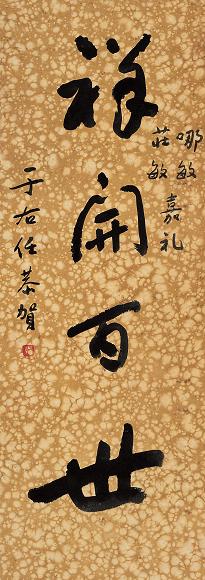 哪敏
莊敏 嘉礼
祥開百世
于右任恭賀